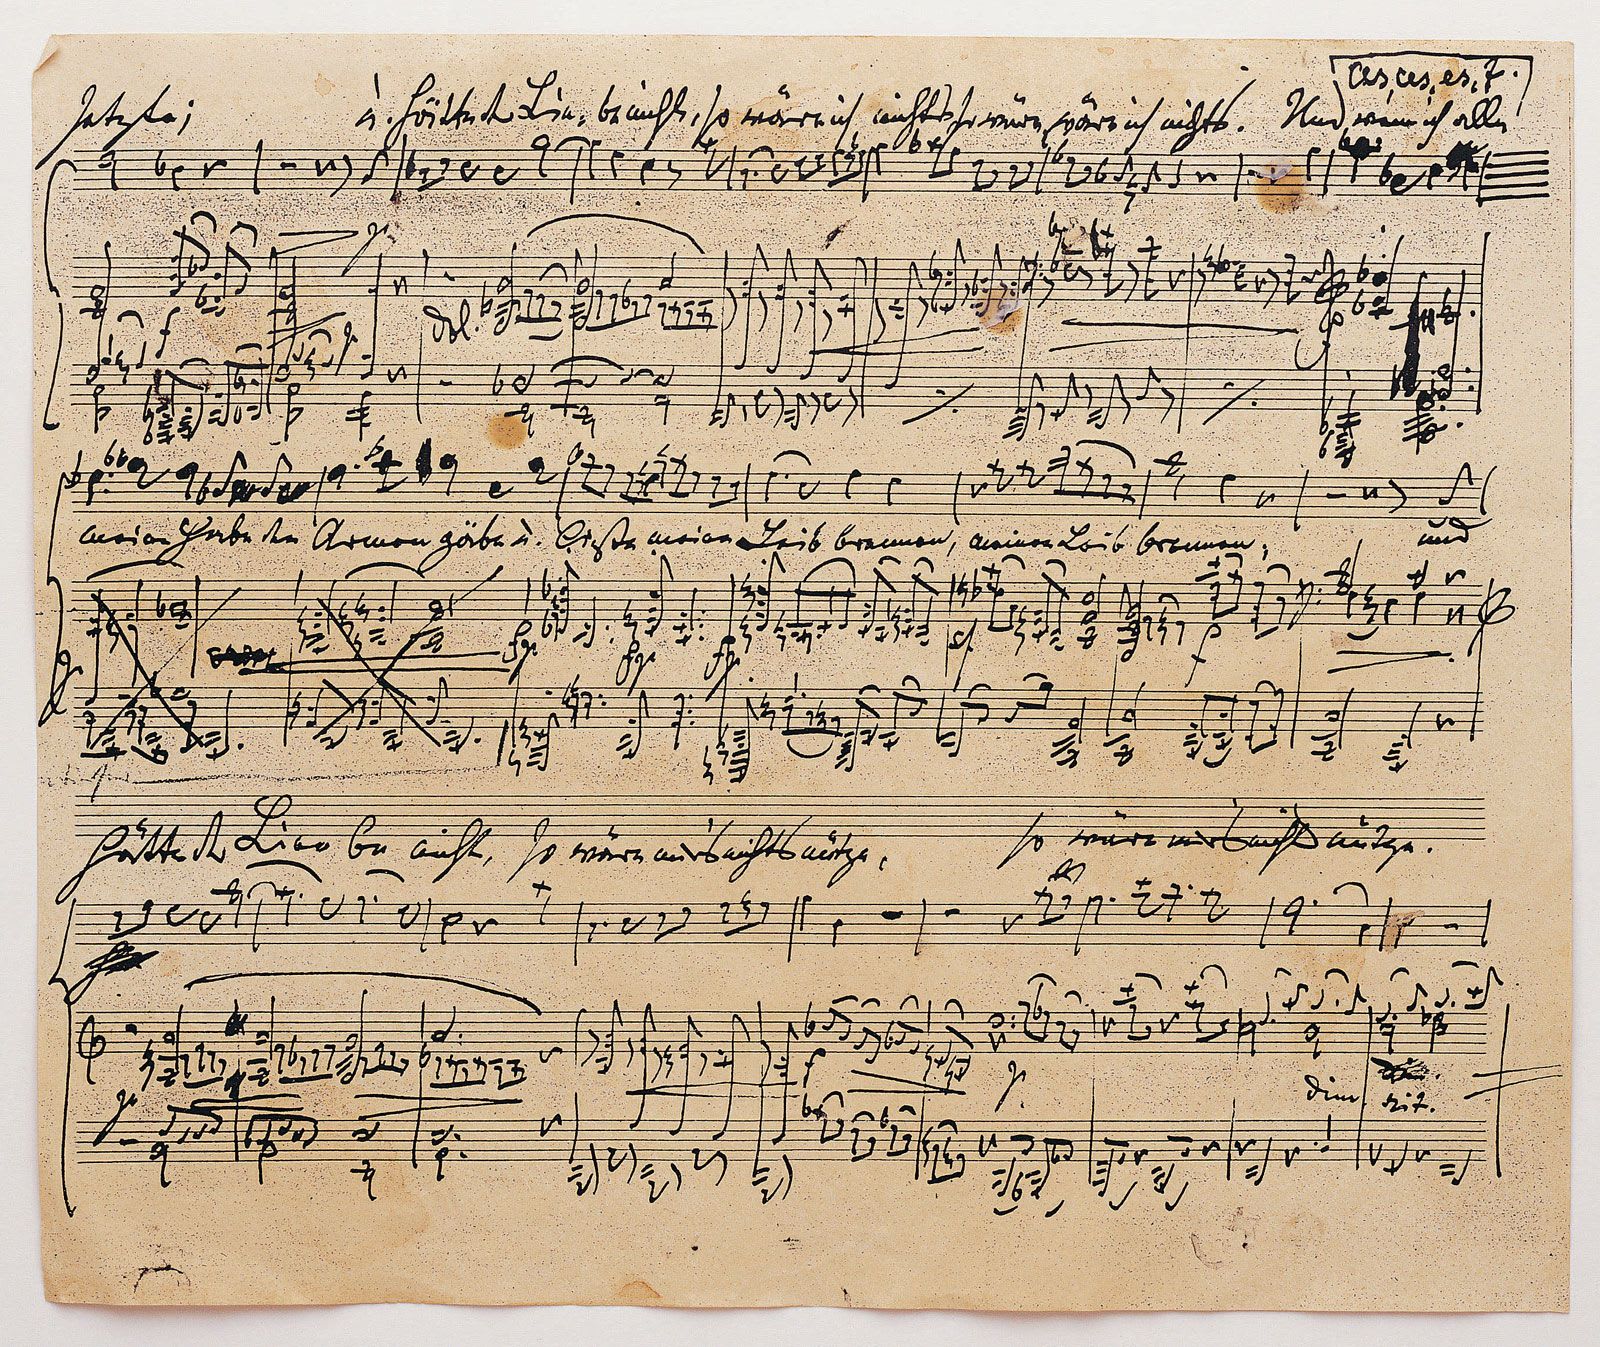 ces, ces, es,
setzte; u. hätte der Liebe nicht, so wäre ich nichts, so wäre, wäre ich nichts. Und wenn ich alle
p
f p
dol.
meine Habe den Armen gäbe u. ließe meinen Leib brennen, meinen Leib brennen; und
p fp fp fp sf f
hätte der Liebe nicht, so wäre mir's nichts nütze, so wäre mir's nichts nütze.
p f p dim. rit.